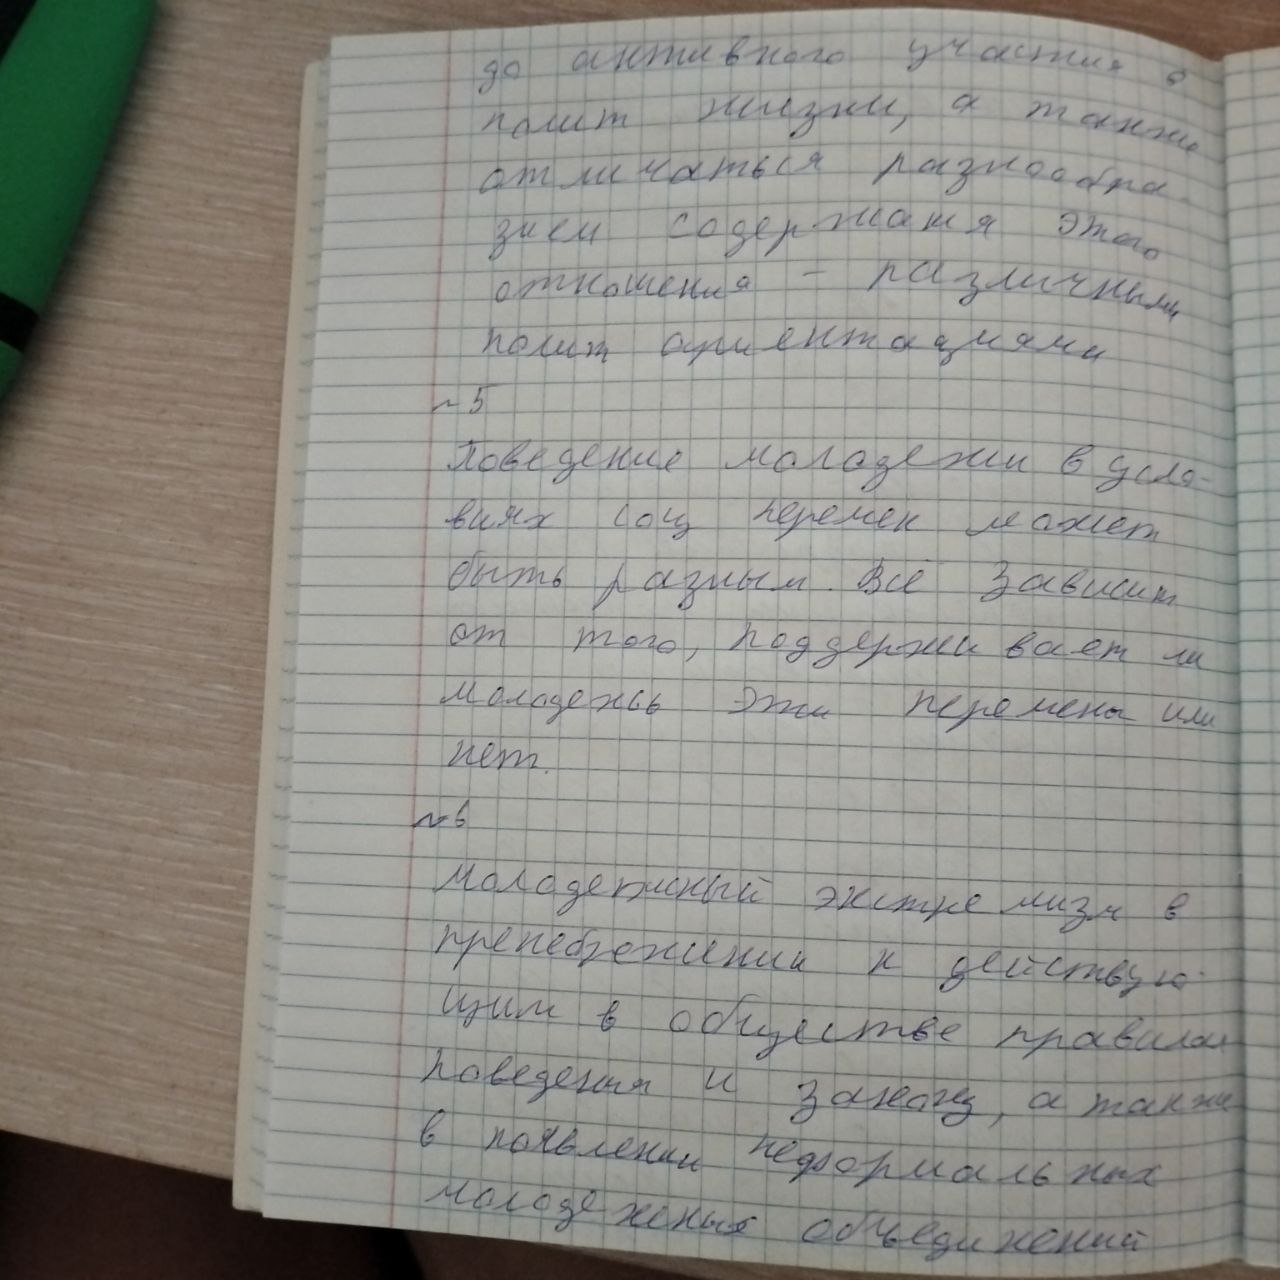 до активного участия в
полит жизни, а также
отличаться разнообра-
зием содержания этого
отношения - различными
полит ориентациями
№5
Поведение молодежи в усло-
виях соц перемен может
быть разным. Всё зависит
от того, поддерживает ли
молодежь эти перемены или
нет.
№6
Молодежный экстремизм в
пренебрежении к действую-
щим в обществе правилам
поведения и закону, а также
в появлении неформальных
молодежных объединений